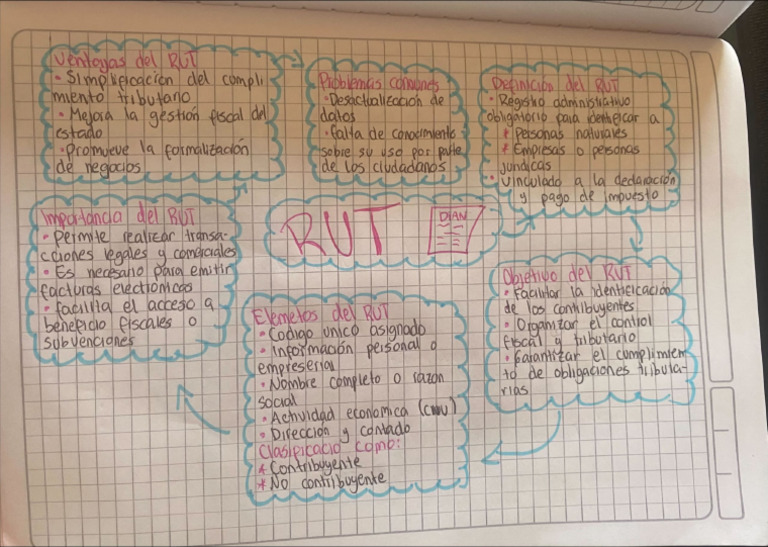 Ventajas del RUT
· Simplificación del cumpli
miento tributario
· Mejora la gestión fiscal del
estado
· Promueve la formalización
de negocios
Problemas comunes
· Desactualización de
datos
· falta de conocimiento
sobre su uso por parte
de los ciudadanos
Definición del RUT
· Registro administrativo
obligatorio para identificar a
* Personas naturales
* Empresas o personas
juridicas
· Vinculado a la declaración
y pago de impuesto
RUT
DIAN
Importancia del RUT
· Permite realizar transa-
cciones legales y comerciales
· Es necesario para emitir
facturas electronicas
· facilita el acceso a
beneficio fiscales o
subvenciones
Elemetos del RUT
· Codigo unico asignado
· Información personal o
empreserial
· Nombre completo o razon
social
· Actividad economica (CIIU)
· Dirección y contado
Clasificacio como:
* Contribuyente
* No contribuyente
Objetivo del RUT
· Facilitar la identicicación
de los contribuyentes
· Organizar el control
fiscal y tributario
· Garantizar el cumplimien
to de obligaciones tributa-
rias